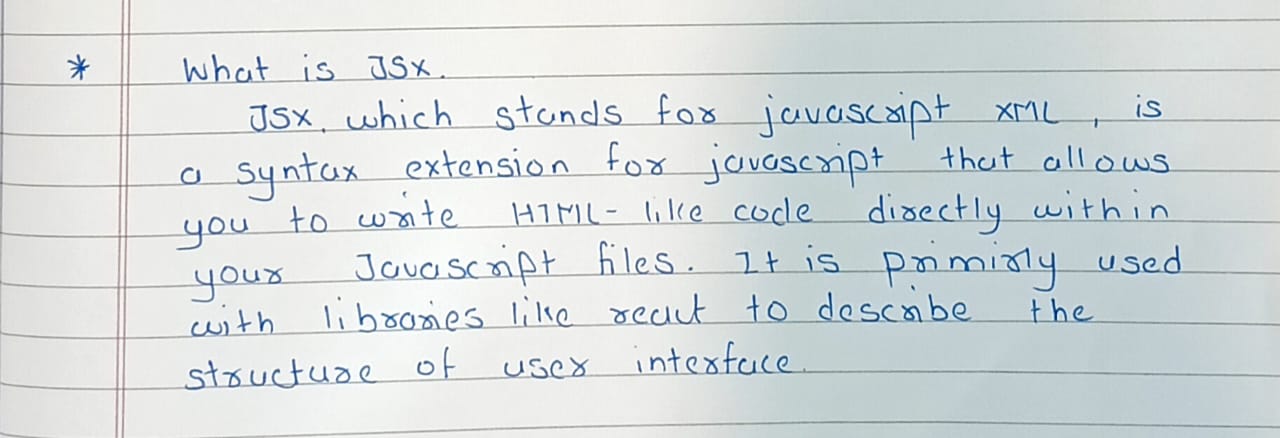 * What is JSX.
JSX, which stands for javascript XML, is
a syntax extension for javascript that allows
you to write HTML-like code directly within
your Javascript files. It is primirly used
with libraries like react to describe the
structure of user interface.